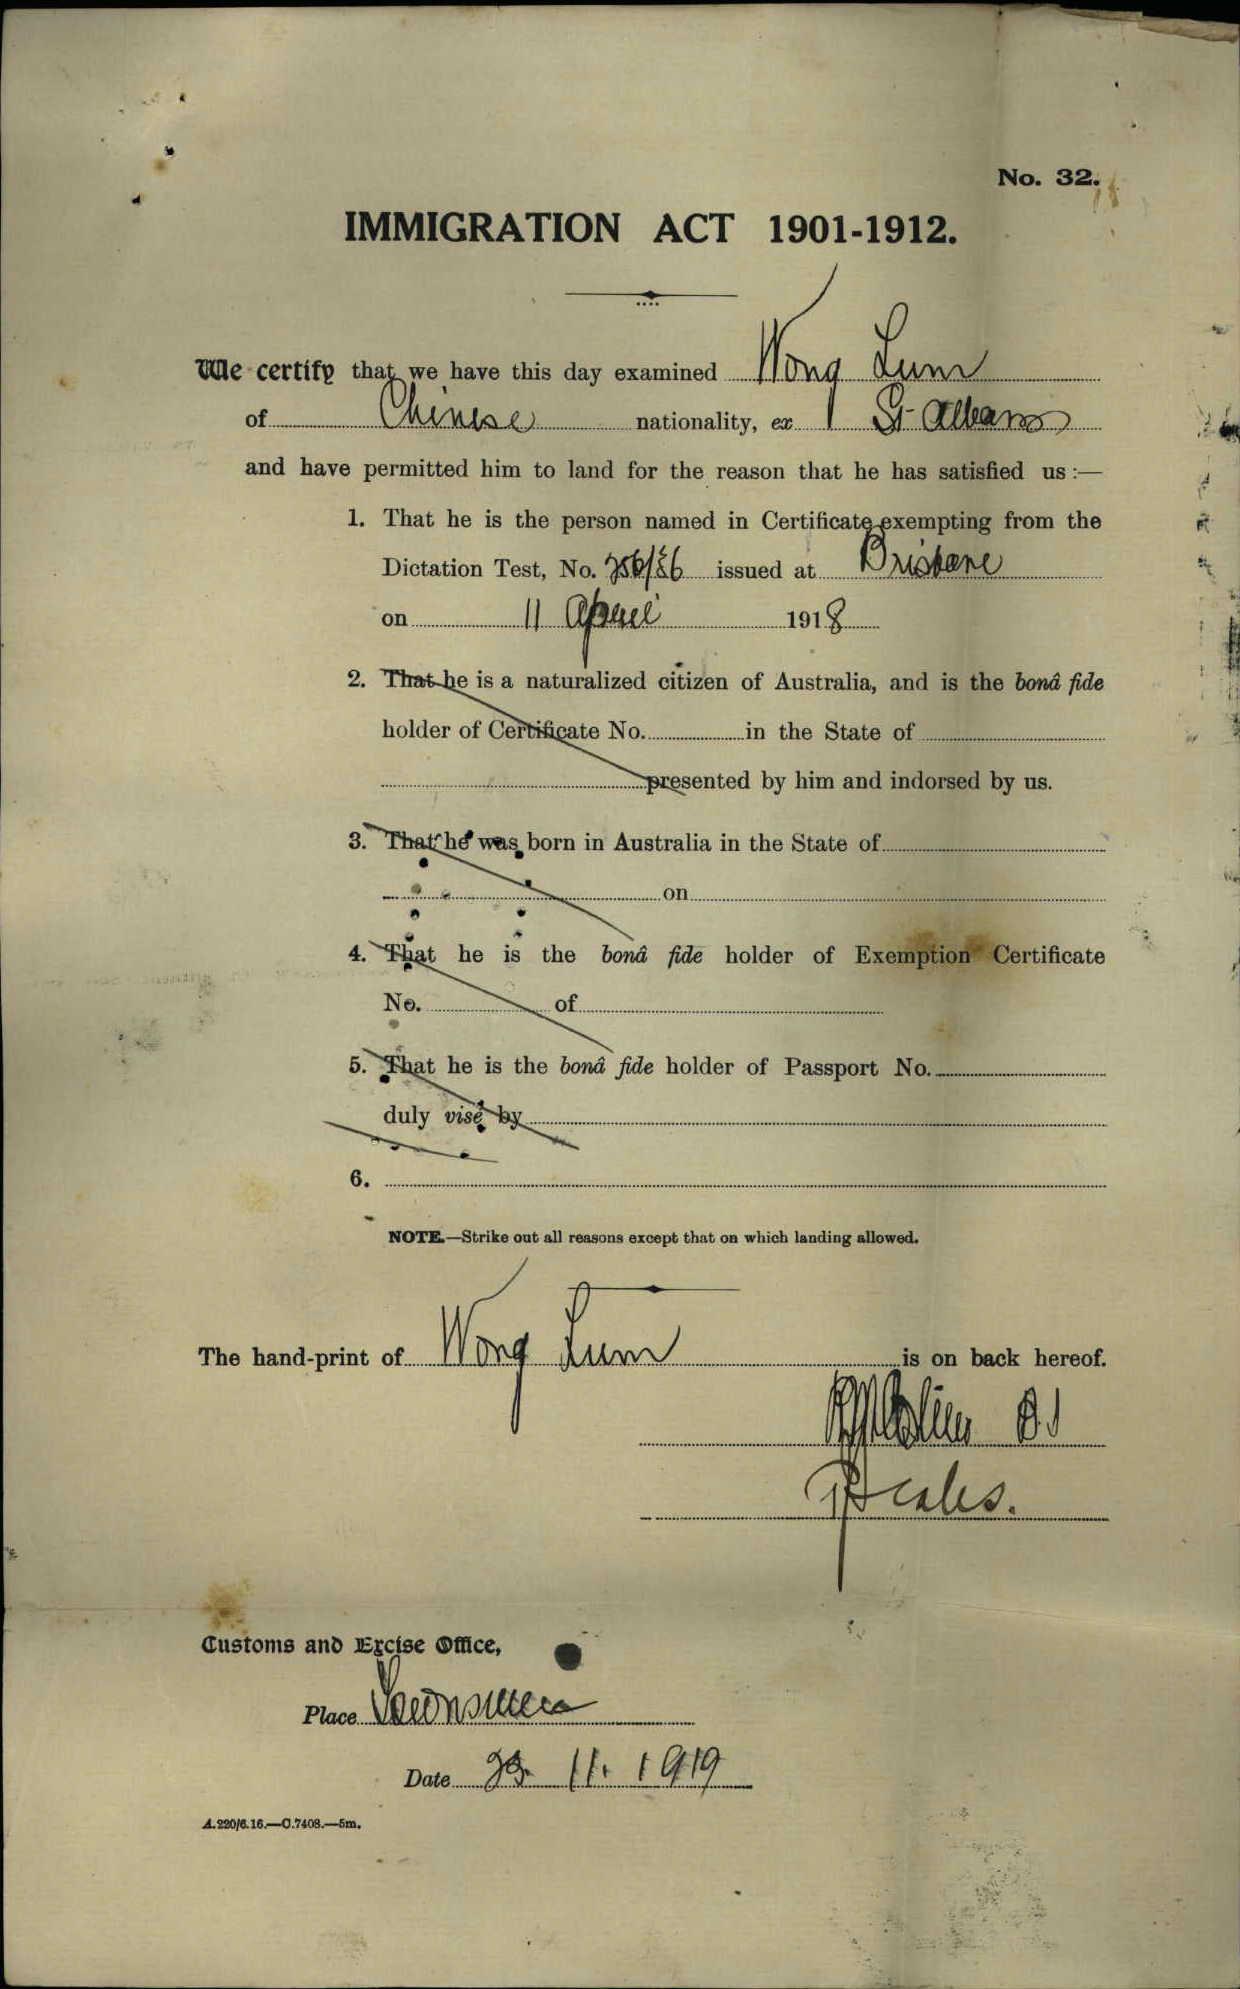 No. 32.
IMMIGRATION ACT 1901-1912.
We certify that we have this day examined Wong Lum
of Chinese nationality, ex St Albans
and have permitted him to land for the reason that he has satisfied us :—
1. That he is the person named in Certificate exempting from the
Dictation Test, No. issued at Brisbane
on 11 April 1918
2. That he is a naturalized citizen of Australia, and is the bonâ fide
holder of Certificate No. in the State of
presented by him and indorsed by us.
3. That he was born in Australia in the State of
on
4. That he is the bonâ fide holder of Exemption Certificate
No. of
5. That he is the bonâ fide holder of Passport No.
duly visé by
6.
NOTE.—Strike out all reasons except that on which landing allowed.
The hand-print of Wong Lum is on back hereof.
Customs and Excise Office,
Place Townsville
Date 11. 1919
A.220/6.16.—C.7408.—5m.